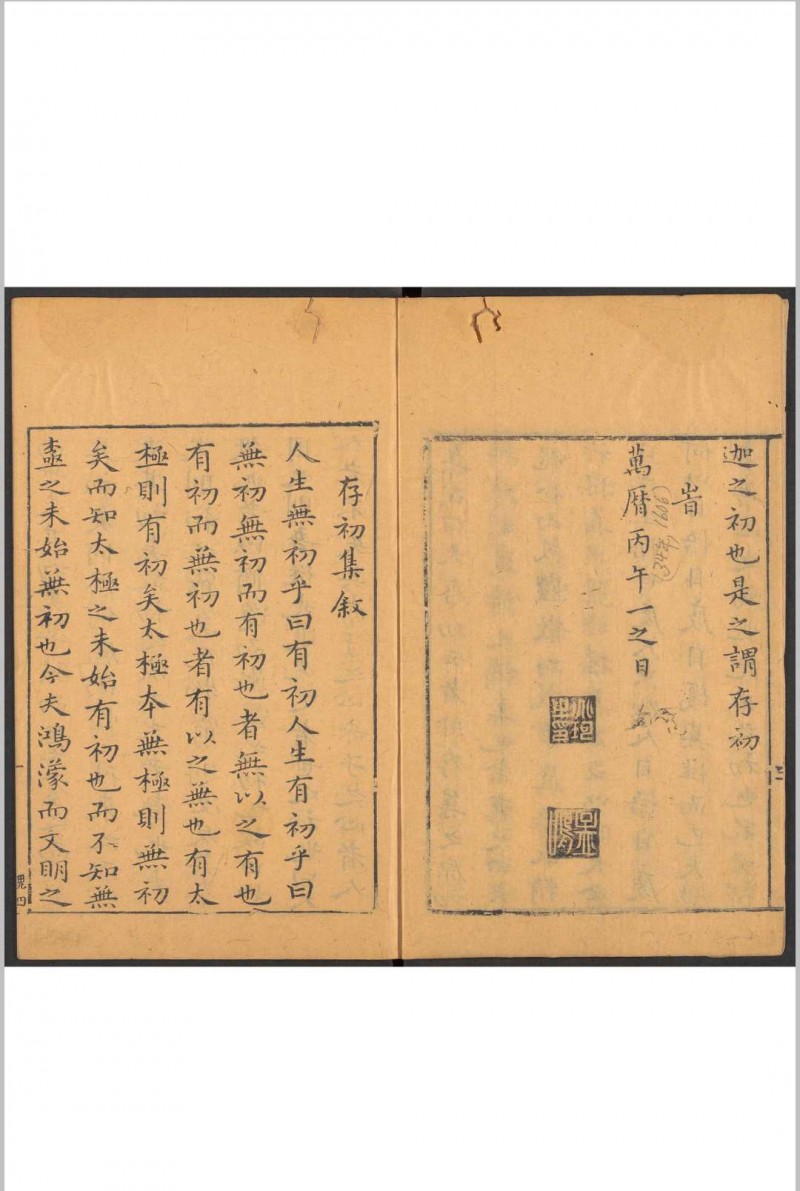 迦之初也是之謂存初
旹
萬曆丙午一之日
存初集叙
人生無初乎曰有初人生有初乎曰
無初無初而有初也者無以之有也
有初而無初也者有以之無也有太
極則有初矣太極本無極則無初
矣而知太極之未始有初也而不知無
極之未始無初也今夫鴻濛而文明之